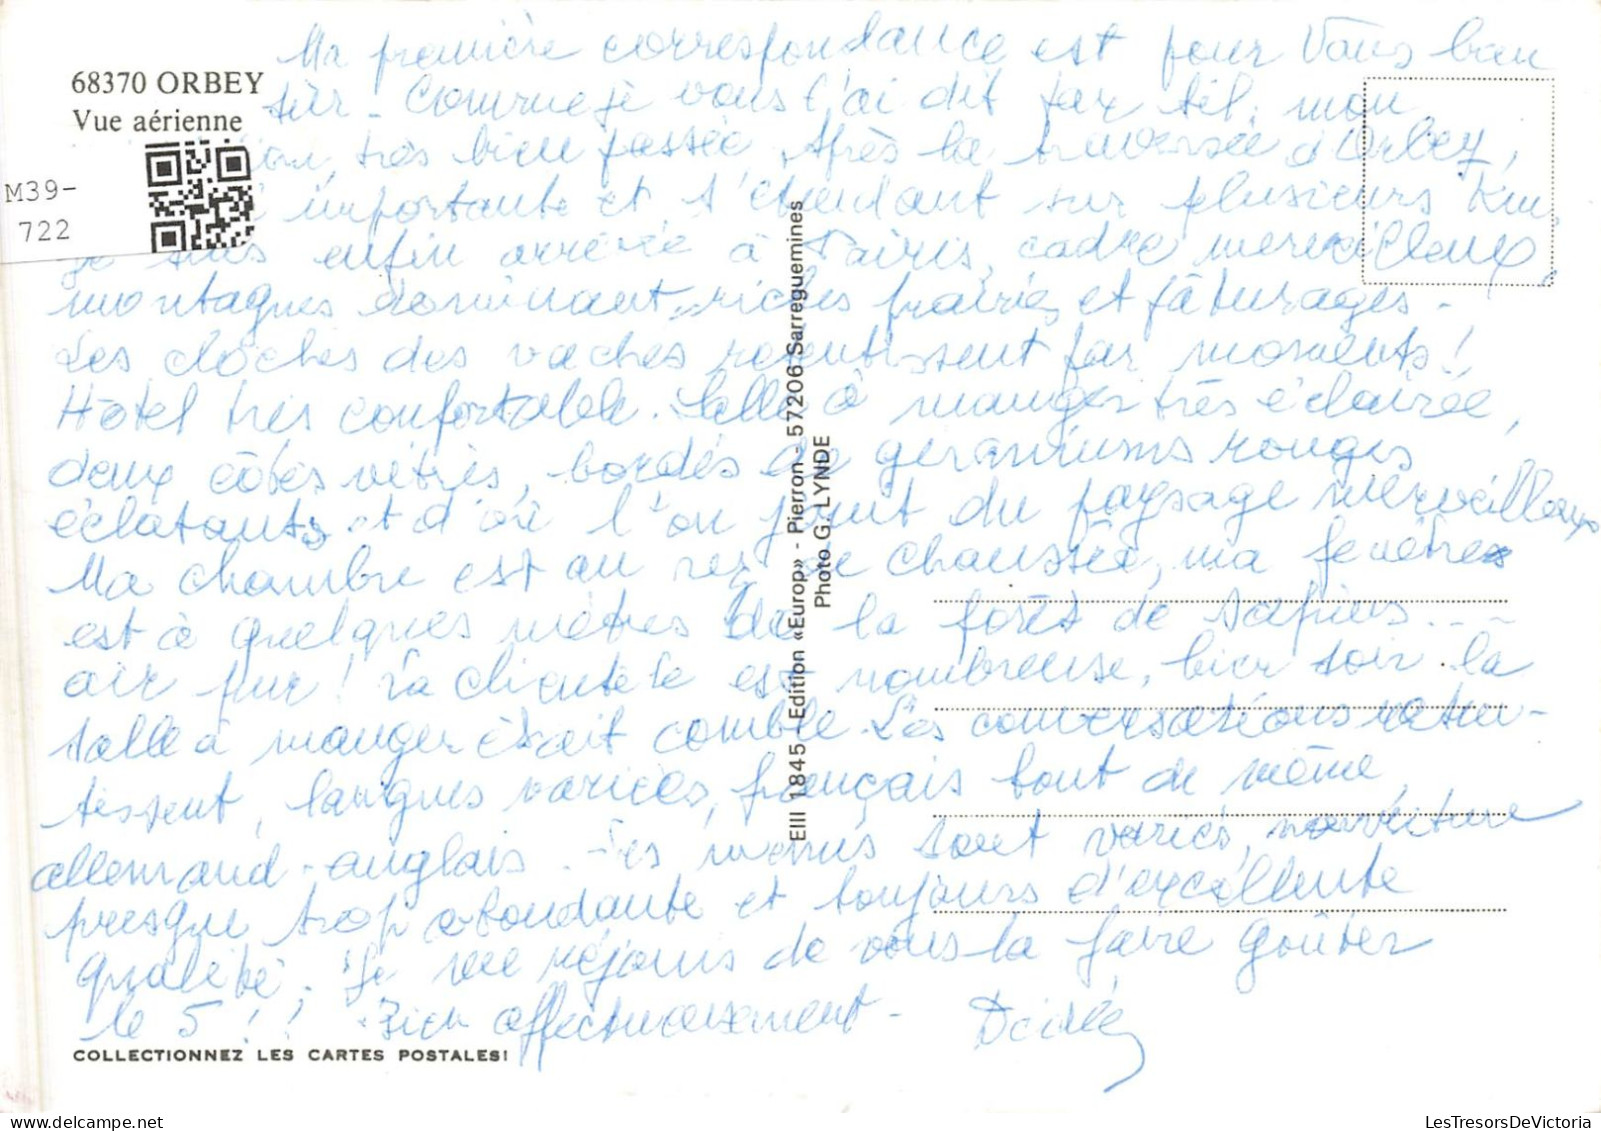 68370 ORBEY
Vue aérienne
M39-
722
Ma première correspondance est pour Vous bien
sûr. Comme je vous l'ai dit par tél. mon
très bien passée. Après la traversée d'Orbey,
importante et s'étendant sur plusieurs Km,
je suis enfin arrivée à Pairis, cadre merveilleux,
montagnes dominant, riches prairies et pâturages.
Les cloches des vaches retentissent par moments !
Hôtel très confortable. Salle à manger très éclairée,
deux côtés vitrés, bordés de géraniums rouges
éclatants et d'où l'on jouit du paysage merveilleux
Ma chambre est au rez de chaussée, ma fenêtre
est à quelques mètres de la forêt de sapins...
air pur ! La clientèle est nombreuse, hier soir la
salle à manger était comble. Les conversations reten-
tissent, langues variées, français tout de même,
allemand-anglais. Les menus sont variés, nourriture
presque trop abondante et toujours d'excellente
qualité. Je me réjouis de vous la faire goûter
le 5 !! Bien affectueusement -
EIII 1845 - Edition «Europ» - Pierron - 57206 Sarreguemines
Photo G. LYNDE
COLLECTIONNEZ LES CARTES POSTALES!
LesTresorsDeVictoria